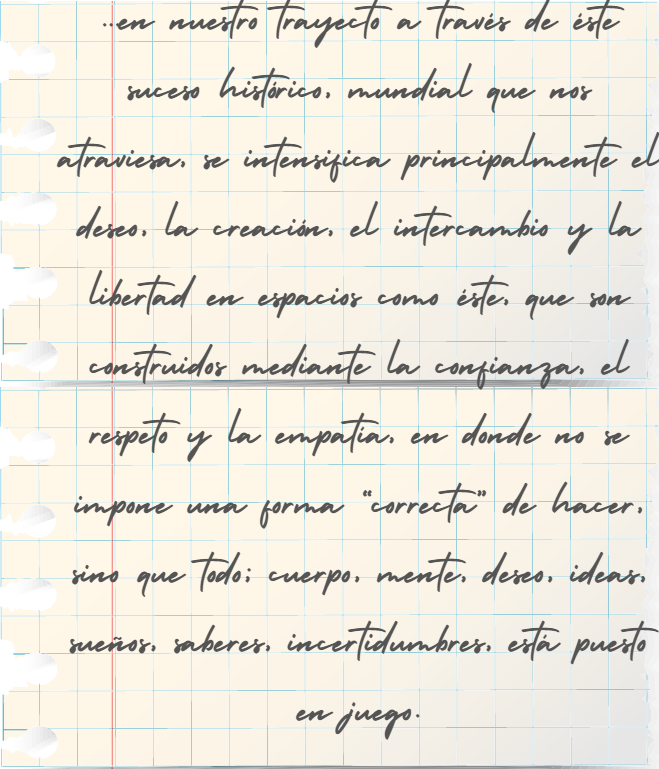 ..en nuestro trayecto a través de éste
suceso histórico, mundial que nos
atraviesa, se intensifica principalmente el
deseo, la creación, el intercambio y la
libertad en espacios como éste, que son
construidos mediante la confianza, el
respeto y la empatía, en donde no se
impone una forma “correcta” de hacer,
sino que todo; cuerpo, mente, deseo, ideas,
sueños, saberes, incertidumbres, está puesto
en juego.